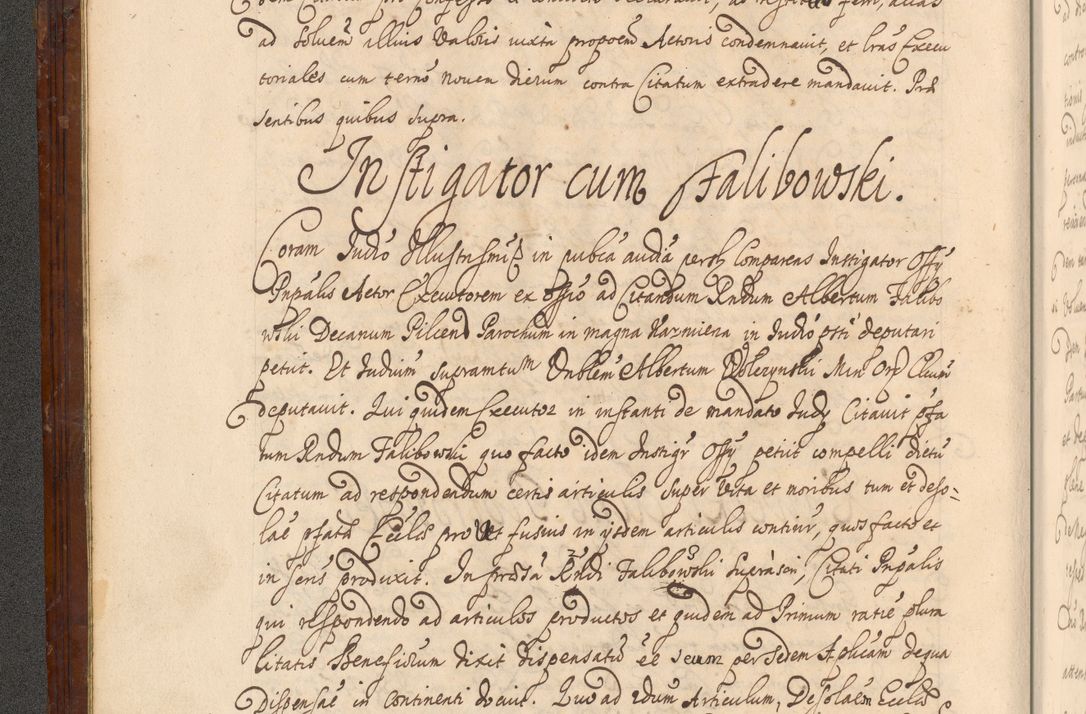 ad solvem̃ allius valoris iuxta propoem̃ Actoris condemnavit, et lras Execu
toriales cum termo novem dierum contra Citatum extradere mandavit. Præ
sentibus quibus supra.
Instigator cum Falibowski.
Coram Iudio Illustrissmi D in pubca audia persl Compareas Instigator Offy
Pnpalis Actor Executorem ex Offio ad Citandum Rndum Albertum Falibo
wski Decanum Pilcen Parochum in magna Narmiena in Iudio psti deputari
petiit. Et Iudiuim supramtum Vnblem Albertum Wolczynski Min Ord Cluum
deputavit. Qui quidem Executor in instanti de mandato Iudy Citavit pfa
tum Rndum Falibowski quo facto idem Instigr Offy petiit compelli dictu
Citatum ad respondendum certis articulis super vita et moribus tum et deso=
lae pfatæ Ecclis pro ut fusius in ysdem articulis continr, quos facto et
in scris produxit. In præsta Rndi Falibowski supra scri, Citati Pnpalis
qui respondendo ad articulos productos et quidem ad Primum ratie plura
litatis Beneficium dixit dispensatu ee secum per Sedem Aplicam dequa
Dispensae in Continenti docuit. Quo ad 2dum Articulum, Desolaem Ecclis